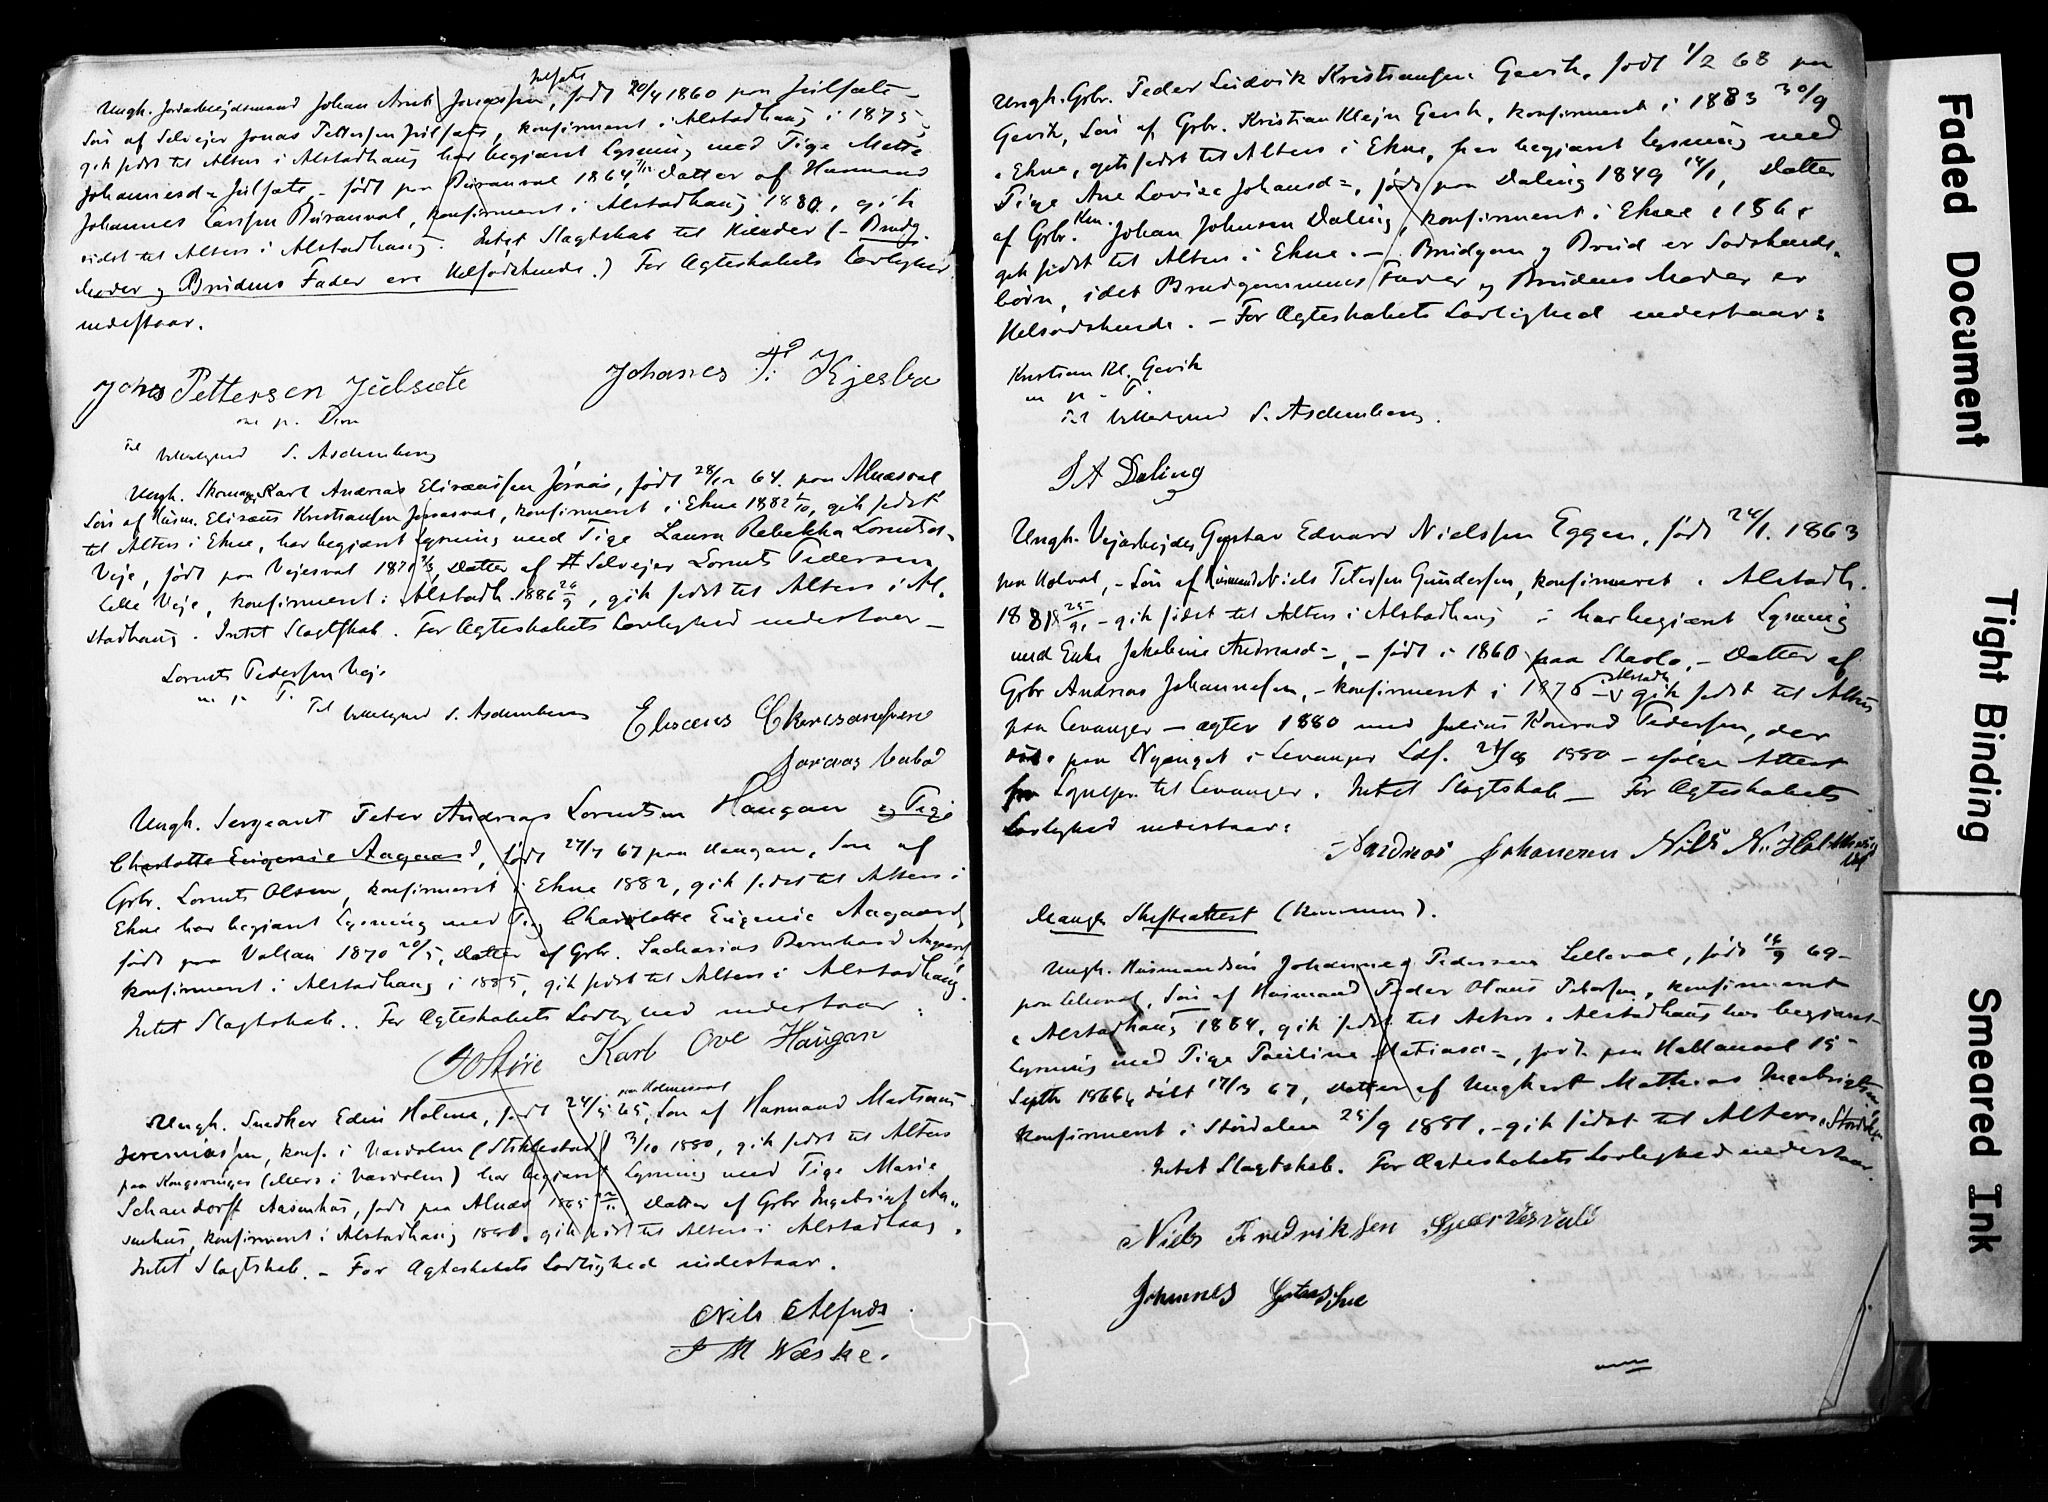 Ungk. Jordarbejdsmand Johan Arnt Jonassen, født 20/4 1860 paa Julsæt-
Julsæt
Søn af Selvejer Jonas Pettersen Julsæt, konfirmeret i Alstadhaug i 1875,
gik sidst til Alters i Alstadhaug har begjært Lysning med Pige Mette
Johannesd= Julsæt - født paa Buranval 1864, Datter af Husmand
Johannes Larssen Buranval, konfirmeret i Alstadhaug 1880, gik
sidst til Alters i Alstadhaug. Intet Slægtskab til Hinder (- Brudg.
Moder og Brudens Fader ere Helsødskende.) For Ægteskabets Lovlighed
indestaar.
Jonas Pettersen Julsæte
Johanes P. Kjesbo
m p. Pen
Til Vitterlighed S. Aschenberg
Ungk. Skomager Karl Andreas Elisæussen Jørnås, født 28/12 64. paa Alnesval
Søn af Husm. Elisæus Kristiansen, konfirmeret i Ekne 1882, gik sidst
til Alters i Ekne, har begjært Lysning med Pige Laura Rebekka Lorntsd=
Veje, født paa Vejesval 1871, Datter af Selvejer Lornts Pedersen
Lille Veje, konfirmeret i Alstadh. 1886, gik sidst til Alters i Al-
stadhaug. Intet Slægtskab. For Ægteskabets Lovlighed indestaar -
Lornts Pedersen Veje
m p P.
Til Vitterlighed S. Aschenberg
Elisæus
Ungk. Sergeant Peter Andreas Lorntsen Haugan og Pige
Charlotte Eugenie Aagaard, født 27/7 67 paa Haugan, Søn af
Grbr. Lornts Olsen, konfirmeret i Ekne 1882, gik sidst til Alters i
Ekne har begjært Lysning med Pige Charlotte Eugenie Aagaard
født paa Valsan 1870 20/5, Datter af Grbr. Sacharias Bernhard Aagaard
konfirmeret i Alstadhaug i 1885, gik sidst til Alters i Alstadhaug.
Intet Slægtskab. For Ægteskabets Lovlighed indestaar:
Karl Ove Haugan
paa Holmesval
Ungk. Snedker Edin Holme, født 24/5 65, Søn af Husmand
Jeremiassen, konf. i Værdalen (Stiklestad) 3/10 1880, gik sidst til Alters
paa Kongsvinger (ellers i Værdalen) har begjært Lysning med Pige Marie
Schandorff Aasenhus, født paa 1865, Datter af Grbr Ingebrigt Aa-
senhus, konfirmeret i Alstadhaug, gik sidst til Alters i Alstadhaug.
Intet Slægtskab. - For Ægteskabets Lovlighed indestaar.
Nils Alfnæs
J M Næske.
Ungk. Grbr. Peder Ludvik Kristiansen Gevik, født 1/2 68 paa
Gevik, Søn af Grbr. Kristian Klejn Gevik, konfirmeret i 1883 30/9
i Ekne, gik sidst til Alters i Ekne, har begjært Lysning med
Pige Ane Lovise Johansd=, født paa Daling 1849 14/1, Datter
af Grbr. Johan Johnsen Daling, konfirmeret i Ekne i
gik sidst til Alters i Ekne. - Brudgom og Brud er Sødskende-
børn, idet Brudgommens Fader og Brudens Moder er
Helsødskende. - For Ægteskabets Lovlighed indestaar:
Kristian Kl. Gevik
m p - P.
Til Vitterlighed S. Aschenberg.
J A Daling
Ungk. Vejarbejder Gustav Edvard Nielssen Eggen, født 24/1. 1863
paa Holval, - Søn af Husmand Niels Petersen Gundersen, konfirmeret i Alstadh.
1881 25/9, - gik sidst til Alters i Alstadhaug - har begjært Lysning
med Enke Jakobine Andreasd=, - født i 1860 paa, - Datter af
Grbr Andreas Johannesen, - konfirmeret i 1876 - gik sidst til Alters
Alstadh
paa Levanger - ægtev 1880 med Julius Konrad Pedersen, der
døde paa Nyenget i Levanger Ldf. 1880 - ifølge Attest
fra Sognepr. til Levanger. Intet Slægtskab - For Ægteskabets
Lovlighed indestaar:
Andreas Johannesen Nils N.
Mangler Skifteattest (kommen).
Ungk. Husmandssøn Johannes Pedersen Lilleval, født 16/9 69 -
paa Lilleval, Søn af Husmand Peder Olaus Petersen, konfirmeret
i Alstadhaug 1884, gik sidst til Alters i Alstadhaug har begjært
Lysning med Pige Pauline Matiasd=, født paa Hallanval 15-
Septb 1866, døbt 17/3 67, Datter af Ungkarl Mathias Ingebrigtsen,
konfirmeret i Stördalen 25/9 1881, - gik sidst til Alters i Stördalen
Intet Slægtskab. For Ægteskabets Lovlighed indestaar
Niels Fredriksen
Johannes
Faded Document
Tight Binding
Smeared Ink